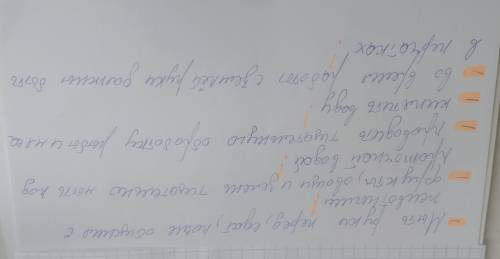 - Мыть руки перед едой, после общения с
животными;
- фрукты, овощи и зелень тщательно мыть под
проточной водой;
- проводить тщательную обработку рыбы и мяса
- кипятить воду;
- во время работы с землёй руки должны быть
в перчатках.